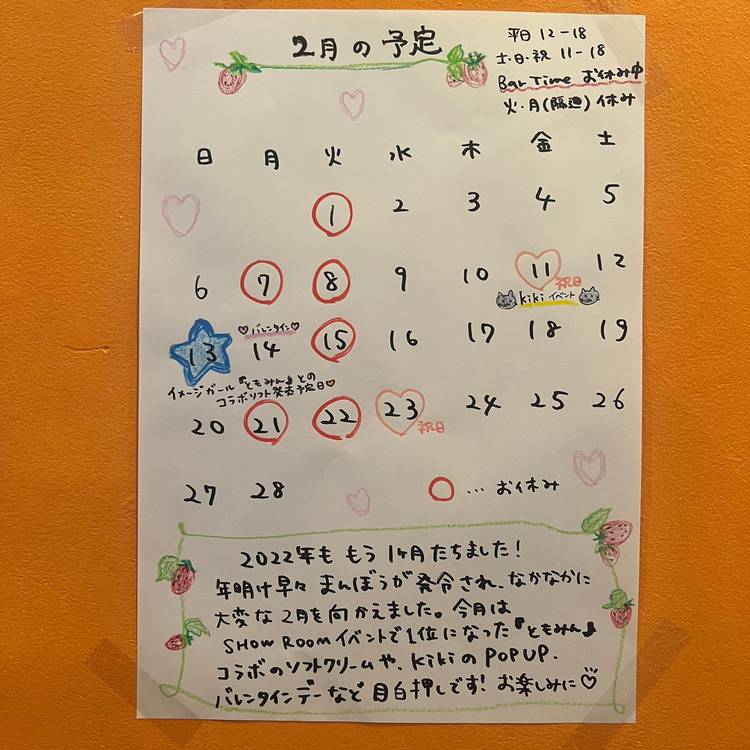 2月の予定
平日 12-18
土・日・祝 11-18
Bar Time お休み中
火・月(隔週)休み
日 月 火 水 木 金 土
1 2 3 4 5
6 7 8 9 10 11 12
祝日
kiki イベント
♡バレンタイン♡
13 14 15 16 17 18 19
イメージガール『ともみん』との
コラボソフト発売予定日♥
20 21 22 23 24 25 26
祝日
27 28
○…お休み
2022年も もう1ヶ月たちました!
年明け早々 まんぼうが発令され、なかなかに
大変な2月を向かえました。今月は
SHOW ROOMイベントで1位になった『ともみん』
コラボのソフトクリームや、kikiのPOPUP、
バレンタインデーなど 目白押しです!お楽しみに♡